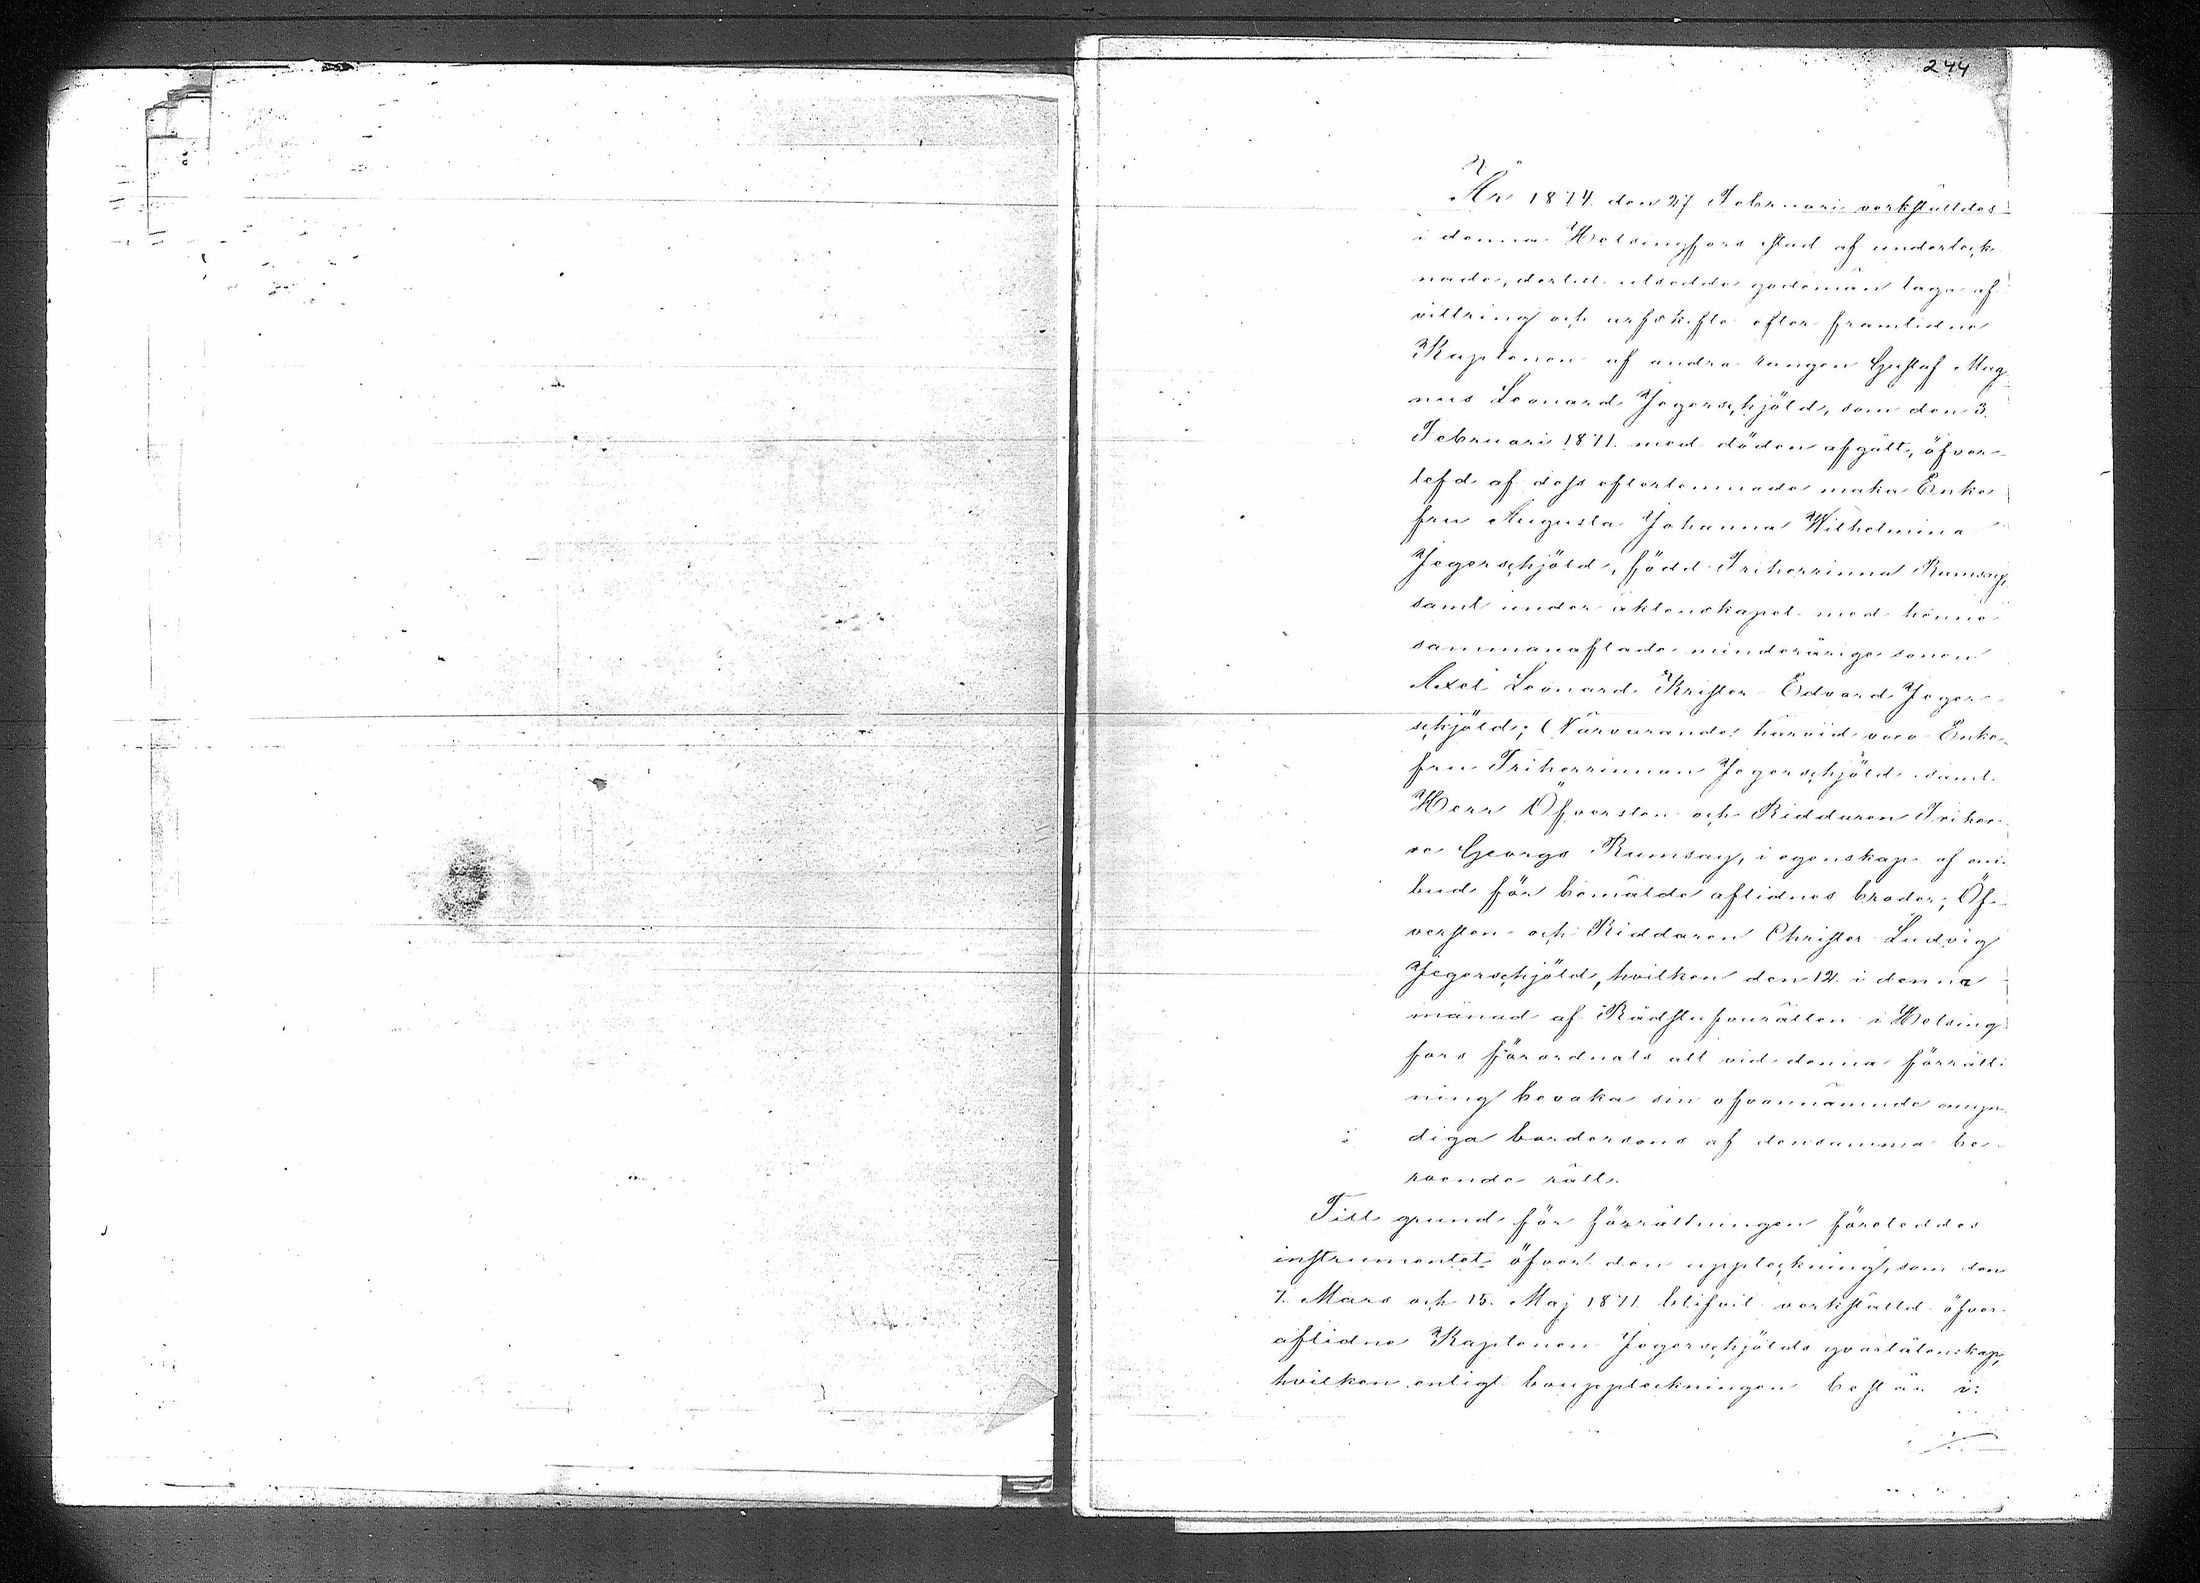 244
År 1874 den 27 Februari verkställdes
i denna Helsingfors stad af underteck
nade, dertill utsedde godemän laga af
vittring och arfskifte efter framlidne
Kaptenen af andra rangen Gustaf Mag
nus Leonard Jegerschjöld, som den 3.
Februari 1871 med döden afgått, öfver
lefd af dess efterlemnade maka Enke
fru Augusta Johanna Wilhelmina
Jegerschjöld, född Friherrinna Ramsay,
samt under äktenskapet med henne
sammanaflade minderårige sonen
Axel Leonard Krister Edvard Jeger
schjöld; Närvarande härvid voro Enke
fru Friherrinnan Jegerschjöld samt
Herr Öfversten och Riddaren Friher
re Georg Ramsay, i egenskap af om
bud för bemälde aflidnes broder, Öf
versten och Riddaren Christer Ludvig
Jegerschjöld, hvilken den 12 i denna
månad af Rådstufvurätten i Helsing
fors förordnats att vid denna förrätt
ning bevaka sin ofvannämnde omyn
diga bordersons af densamma be
roende rätt.
Till grund för förrättningen företeddes
instrumentet öfver den uppteckning, som den
7. Mars och 15. Maj 1871 blifvit verkställd öfver
aflidne Kaptenen Jegerschjölds qvarlåtenskap,
hvilken enligt bouppteckningen består i: